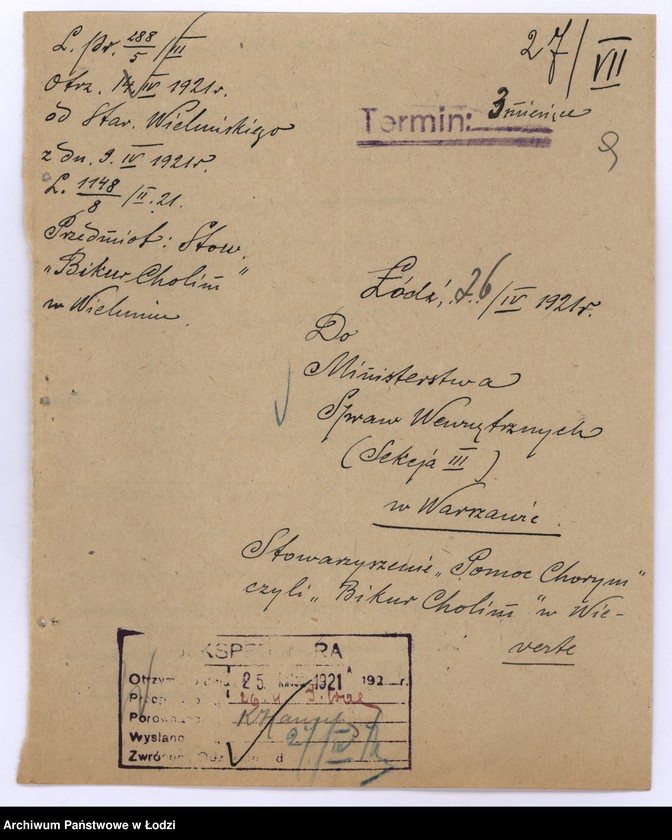 L. pr. 288/5 /III
Otrz. 14/IV 1921r.
od Star. Wieluńskiego
z dn. 9. IV 1921r.
L. 1148/8 /II. 21.
Przedmiot: Stow.
"Bikur Cholim"
w Wieluniu
27/VII
Termin: 3 miesiące
Łódź, 26/IV 1921r.
Do
Ministerstwa
Spraw Wewnętrznych
(Sekcja III)
w Warszawie.
Stowarzyszenie „Pomoc Chorym"
czyli „Bikur Cholim" w Wie-
verte
EKSPEDYTURA
25 1921 192 r.
Wysłano
27/IV
Archiwum Państwowe w Łodzi